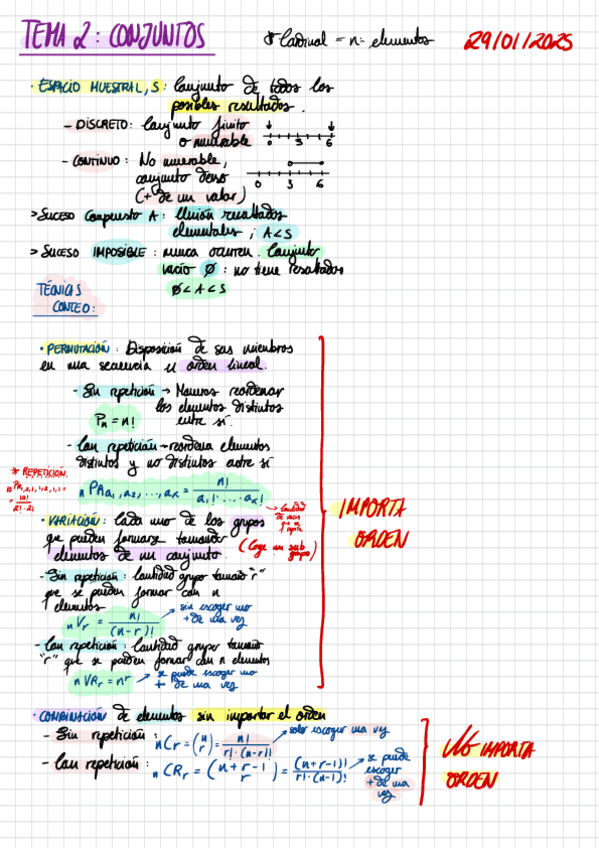 TEMA 2: CONJUNTOS
* Cardinal = nº elementos
29/01/2025
· ESPACIO MUESTRAL, S: Conjunto de todos los
posibles resultados.
- DISCRETO: Conjunto finito
o numerable
0 3 6
- CONTINUO: No numerable,
conjunto denso
(+ de un valor)
0 3 6
> SUCESO Compuesto A: Unión resultados
elementales; A < S
> SUCESO IMPOSIBLE: nunca ocurren. Conjunto
vacío Ø: no tiene resultados
Ø < A < S
TÉCNICAS
CONTEO:
· PERMUTACIÓN: Disposición de sus miembros
en una secuencia u orden lineal.
- Sin repetición → Maneras reordenar
los elementos distintos
entre sí.
Pn = n!
- Con repetición → reordena elementos
distintos y no distintos entre sí
* REPETICIÓN.
n PR a1, a2, ..., ak = n! / a1! · ... · ak!
→ Cantidad
de veces
que se
repite
· VARIACIÓN: Cada uno de los grupos
que pueden formarse tomando
elementos de un conjunto.
(Coge un sub
grupo)
- Sin repetición: Cantidad grupo tamaño "r"
que se pueden formar con n
elementos
n Vr = n! / (n-r)!
→ sin escoger uno
+ de una vez
- Con repetición: Cantidad grupos tamaño
"r" que se pueden formar con n elementos
n VRr = n^r
→ se puede escoger uno
+ de una vez
IMPORTA
ORDEN
· COMBINACIÓN de elementos sin importar el orden
- Sin repetición: nCr = (n r) = n! / r!·(n-r)!
→ solo escoger una vez
- Con repetición: n CRr = (n+r-1 r) = (n+r-1)! / r!·(n-1)!
→ se puede
escoger
+ de una
vez
NO IMPORTA
ORDEN